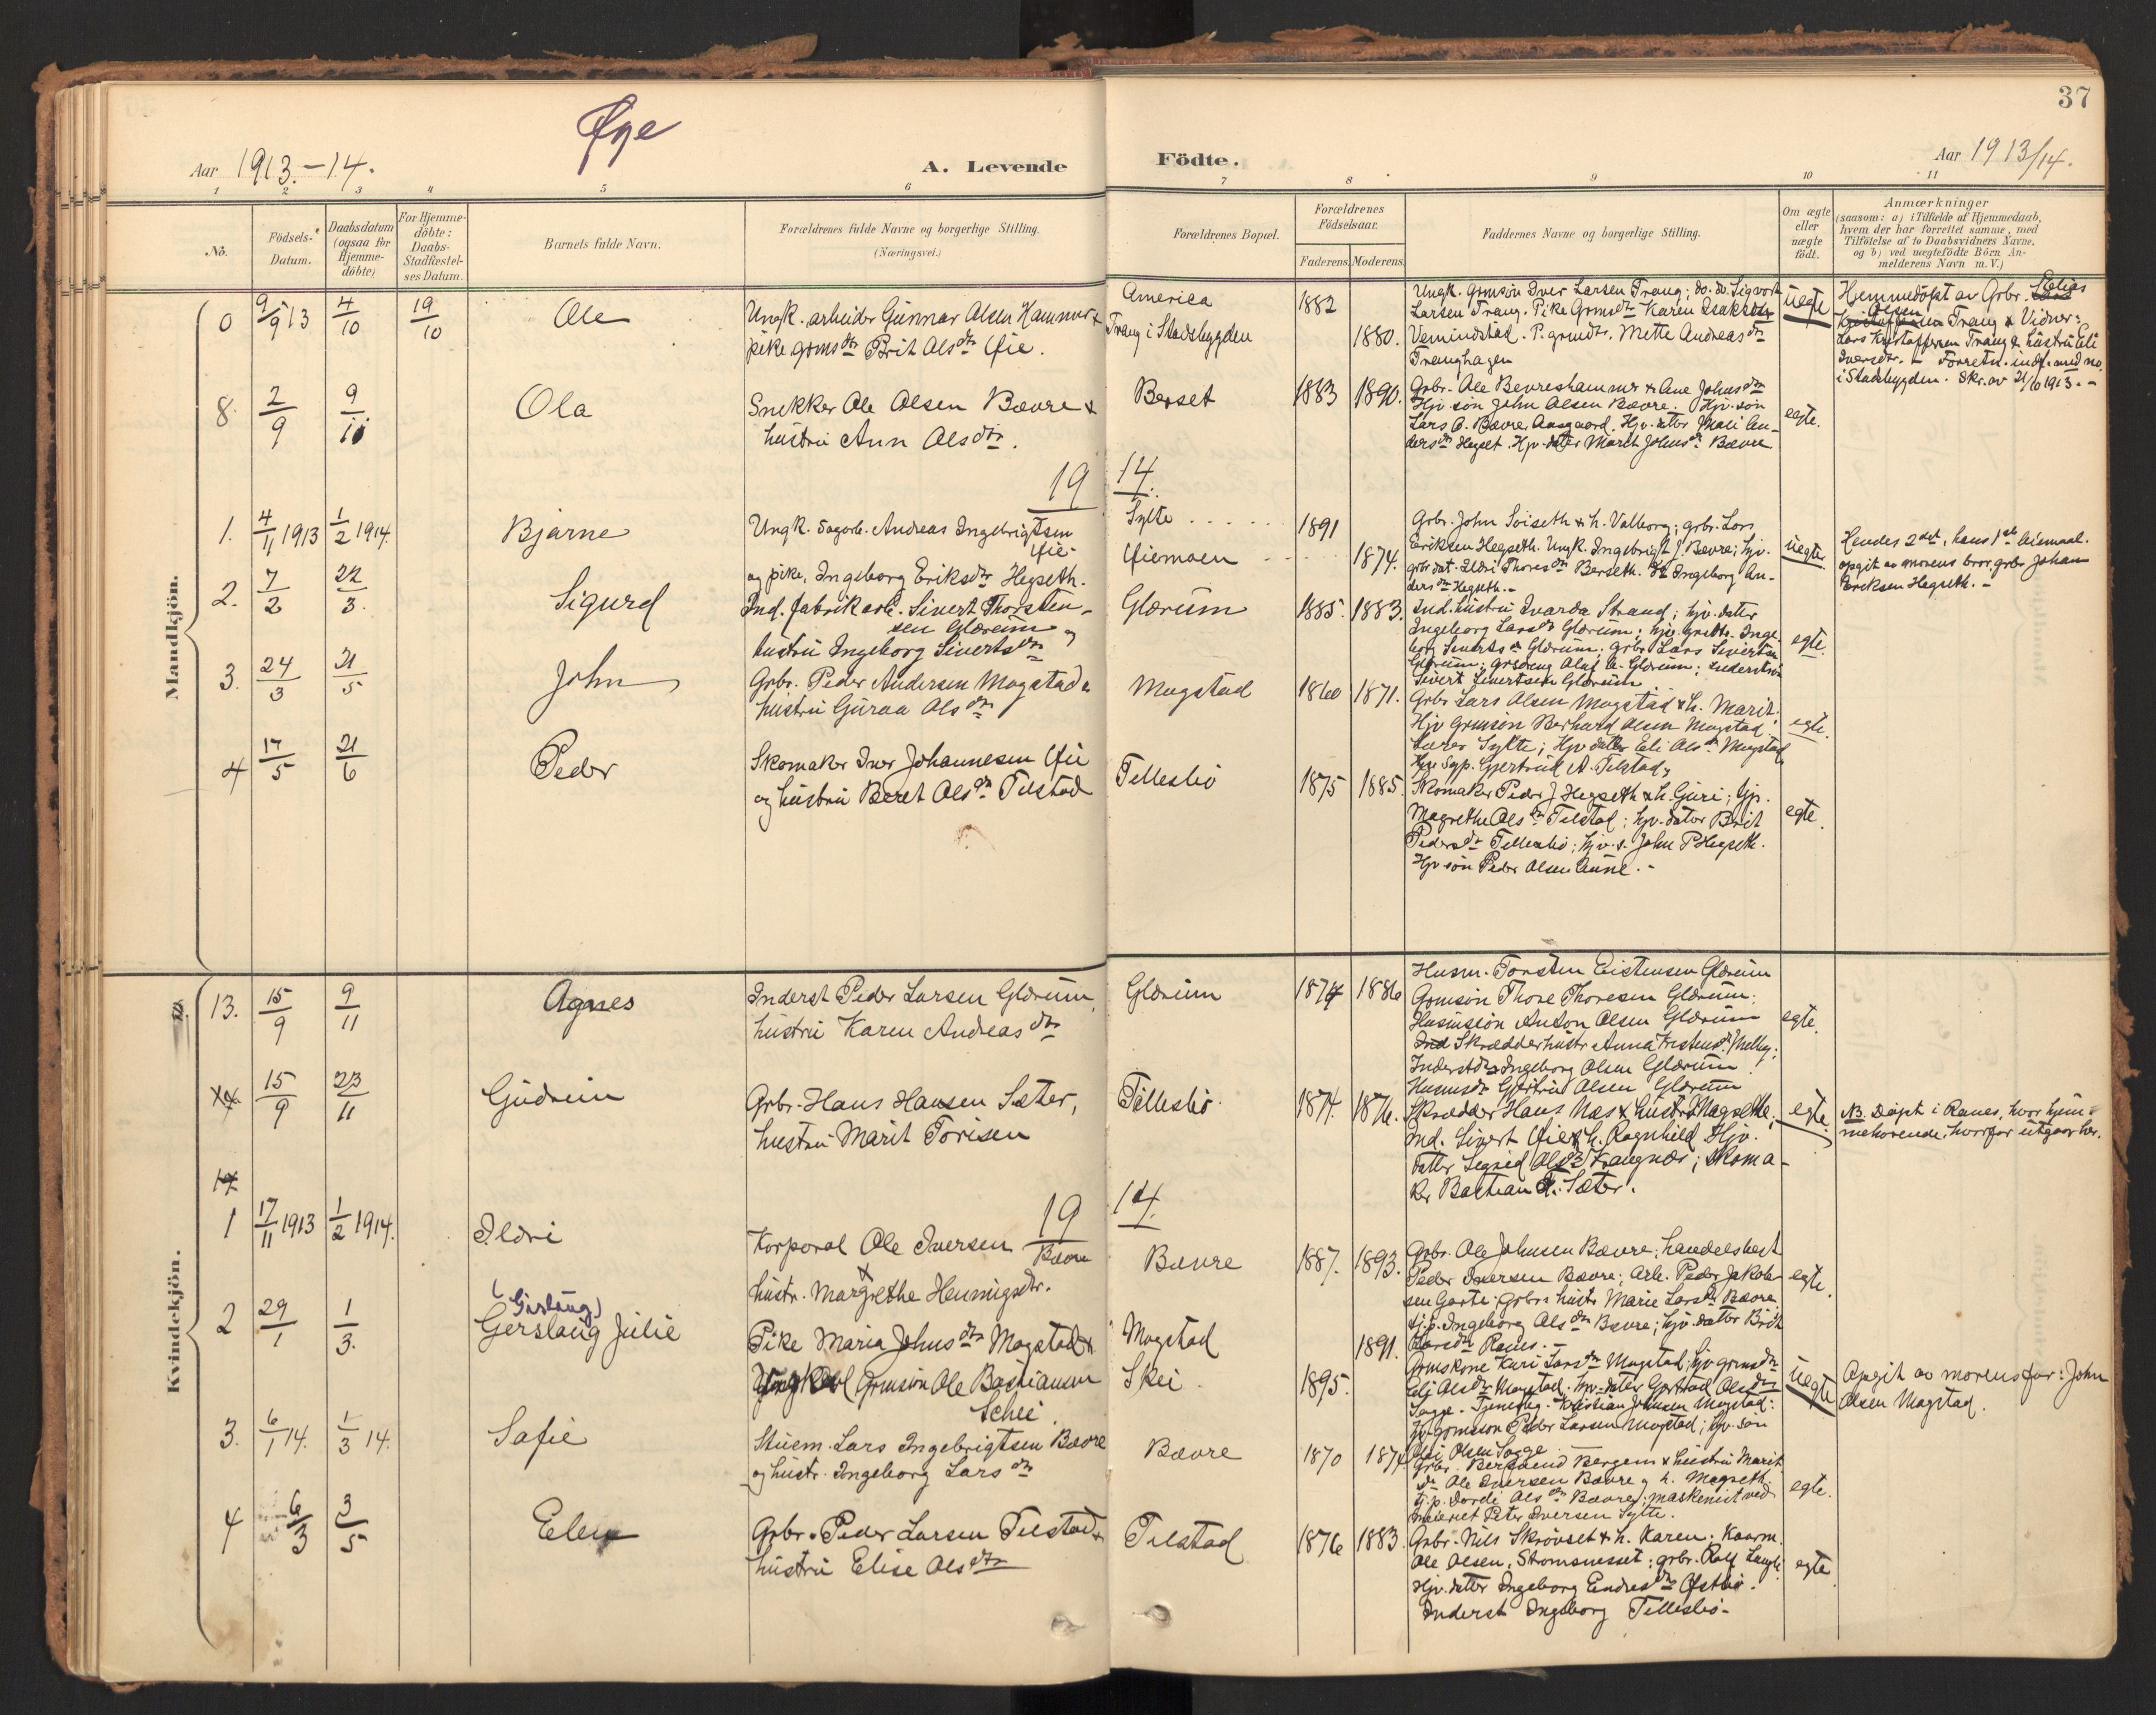 Øye
37
Aar 1913.-14.
A. Levende
Födte.
Aar 1913/14.
1 2 3 4 5 6 7 8 9 10 11
No.
Födsels-Datum.
Daabsdatum (ogsaa for Hjemme-döbte)
For Hjemme-döbte: Daabs-Stadfæstel-ses Datum.
Barnets fulde Navn.
Forældrenes fulde Navne og borgerlige Stilling. (Næringsvei.)
Forældrenes Bopæl.
Forældrenes Födselsaar.
Faderens. Moderens.
Faddernes Navne og borgerlige Stilling.
Om ægte eller uægte födt.
Anmærkninger
(saasom: a) i Tilfælde af Hjemmedaab,
hvem der har forrettet samme, med
Tilföielse af to Daabsvidners Navne,
og b) ved uægtefödte Börn An-
melderens Navn m. V.)
Mandkjön.
0 9/9 13 4/10 19/10 Ole
Ungk. arbeider Gunnar Olsen Hammer &
pike gdmsdtr Brit Olsdtr Øie.
America
Trang i Stadsbygden
1882
1880.
Ungk. grmsön Iver Larsen Trang; do. do. Sigvart
Larsen Trang. Pike Grmsdtr Karen Isaksdtr
Vemindstad. P. grmdtr. Mette Andreasdtr
Tranghagen
uegte
Hjemmedöpt av Grbr. Elias
Olsen Trang & Vidner:
Lars Kristoffersen Trang & hustru Eli
Iversdtr. - Forretn. indf. med no.
i Stadsbygden. Skr. av 21/10 1913. -
8. 2/9 9/10 Ola
Snekker Ole Olsen Bævre &
hustru Ann Olsdtr.
Berset
1883 1890.
Grbr. Ole Bevreshammer & Ane Johnsdtr
Hjv. sön John Olsen Bævre. Hjv. sön
Lars O. Bævre Aasgaard. Hjv. datter Mali An-
dersdtr Hegset. Hjv. datter Marit Johnsdtr Bævre
egte.
19 14.
1. 4/11 1913 1/2 1914. Bjarne
Ungk. sagarb. Andreas Ingebrigtsen
Øie
og pike, Ingeborg Eriksdtr Hegseth.
Sylte
Øiemoen
1891
1874.
Grbr. John Soiseth & h. Valborg; grbr. Lars
Eriksen Hegseth. Ungk. Ingebrigt J. Bævre; hjv.
grbr dat. Ildri Thoresdtr Berseth. Ingeborg An-
dersdtr Hegseth. -
uegte
Hendes 2det, hans 1ste leiemaal.
opgit av morens bror, grbr Johan
Eriksen Hegseth. -
2. 7/2 22/3. Sigurd
Ind. fabrikarb. Sivert Thorsten-
sen Glærum og
hustru Ingeborg Sivertsdtr
Glærum
1885. 1883.
Ind. hustru Ivarda Strand; hjv. datter
Ingeborg Larsdtr Glærum; hjv. grbdtr. Inge-
borg Sivertsdtr Glærum; grbr Lars Sivertsen
Glærum; grsdreng Oluf A. Glærum; inderstsön
Sivert Sivertsen Glærum
egte.
3. 24/3 21/5 John
Grbr. Peder Andersen Mogstad &
hustru Guraa Olsdtr
Mogstad
1860 1871.
Grbr Lars Olsen Mogstad & h. Marit.
Hjv grmsön Berhard Olsen Mogstad
Lærer Sylte; Hjv datter Eli Olsdtr Mogstad
Gjertrud A. Tilstad;
egte.
4 17/5 21/6 Peder
Skomaker Iver Johannesen Øie
og hustru Beret Olsdtr Tilstad
Tellesbö
1875 1885.
Skomaker Peder J Hegseth & h. Guri; hjv.
Magrethe Olsdtr Tilstad; hjv. datter Brit
Pedersdtr Tellesbö; hjv. s. John P Hegseth.
Hjv sön Peder Olsen Aune. -
egte.
Kvindekjön.
13. 15/9 9/11 Agnes
Inderst Peder Larsen Glærum,
hustru Karen Andreasdtr
Glærum
1874 1886
Husm. Torsten Eistensen Glærum
Grmsön Thore Thoresen Glærum;
Husmsön Anton Olsen Glærum
Skrædderhustr Anna Melby;
Inderstdtr Ingeborg Olsen Glærum.
Husmsdtr Gjertrud Olsen Glærum
egte.
15/9 23/11 Gudrun
Grbr. Hans Hansen Sæter,
hustru Marit Torisen
Tellesbö
1874. 1876.
Skrædder Hans Næs & hustr. Magrethe;
Ind. Sivert Øie & h. Ragnhild. Hjv.
datter Sigrid Olsdtr Krangnær; skoma-
ker Bastian Sæter.
egte.
NB. Döpt i Ranes, hvor hjem-
mehörende, hvorfor utgaar her.
14
19 14.
1 17/11 1913 1/2 1914. Ildri
Korporal Ole Iversen Bævre
&
hustr. Margrethe Henningsdtr.
Bævre
1887. 1893.
Grbr. Ole Johnsen Bævre; handelsbest
Peder Iversen Bævre; Arb. Peder Jakob-
sen Garte; Grbr. hustr Marie Larsdtr Bævre
tj.p. Ingeborg Olsdtr Bævre; hjv. datter Brit
Larsdtr Ranes. -
egte.
2 29/1 1/3. (Gislaug)
Gerslaug Julie
Pike Maria Johnsdtr Mogstad &
Ungkarl Grmsön Ole Bastiansen
Schei.
Mogstad
Skei
1891.
1895.
Grmskone Kari Larsdtr Mogstad; hjv grmsdtr
Eli Olsdtr Mogstad. hjv. datter Gjertrud Olsdtr
Sogge. Tjenestg. Kristian Johnsen Mogstad;
hjv. grmssön Peder Larsen Mogstad; hjv. sön
Olsen Sogge.
uegte
Opgit av morens far: John
Olsen Mogstad.
3. 6/1 14. 1/3 14. Safie
Stuem. Lars Ingebrigtsen Bævre
og hustr. Ingeborg Larsdtr
Bævre
1870 1874
Grbr. Bersvend Bergem & hustru Marit
Do Ole Iversen Bævre & h. Magreth.
tj.p. Dordi Olsdtr Bævre; maskinist ved
meieriet Peter Iversen Sylte.
egte.
4 6/3 3/5 Elen
Grbr. Peder Larsen Tilstad &
hustru Elise Olsdtr
Tilstad
1876 1883.
Grbr. Nils Skrövset & h. Karen; Kaarm.
Ole Olsen, Strömsnesset; grbr. Rolf Langli
Hjv. datter Ingeborg Endresdtr Østbö.
Inderst Ingeborg Tellesbö-
egte